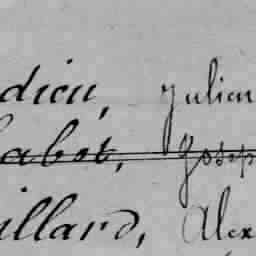 dieu, Julien
abot, Josep
illard, Alex